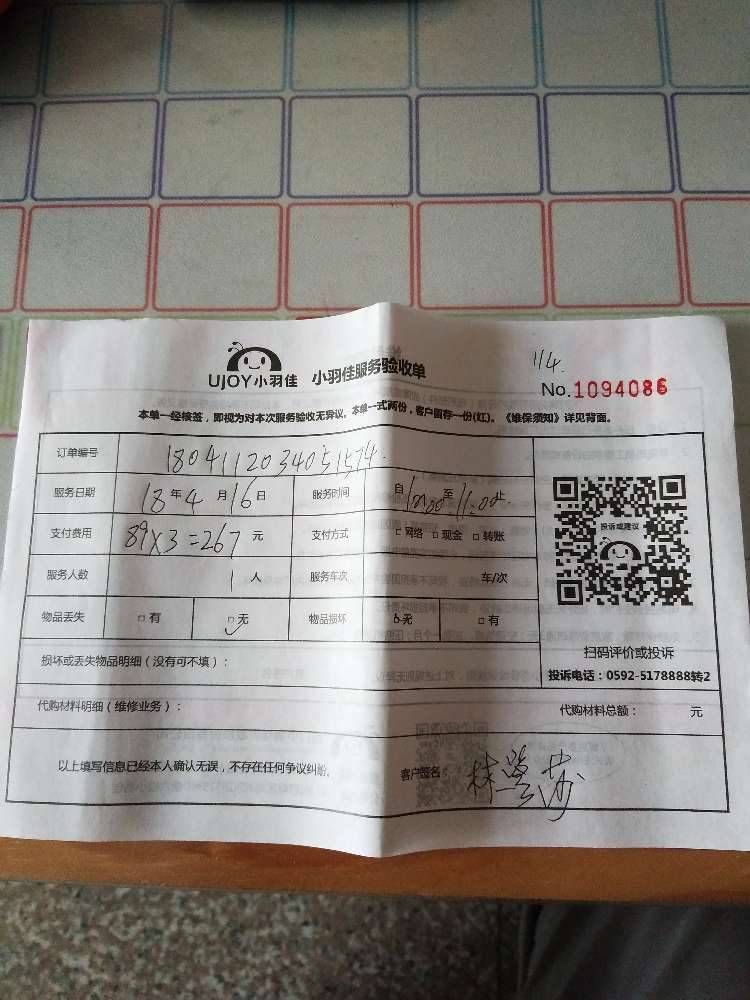 UJOY小羽佳 小羽佳服务验收单
114.
No.1094086
本单一经核签，即视为对本次服务验收无异议。本单一式两份，客户留存一份(红)。《维保须知》详见背面。
订单编号 1804112034051574.
服务日期 18年4月16日 服务时间 自 至11:00止
支付费用 89×3=267元 支付方式 □网络 □现金 □转账
服务人数 1人 服务车次 车/次
物品丢失 □有 □无 物品损坏 □无 □有
投诉或建议
扫码评价或投诉
投诉电话：0592-5178888转2
损坏或丢失物品明细（没有可不填）：
代购材料明细（维修业务）： 代购材料总额： 元
以上填写信息已经本人确认无误，不存在任何争议纠纷。 客户签名 林